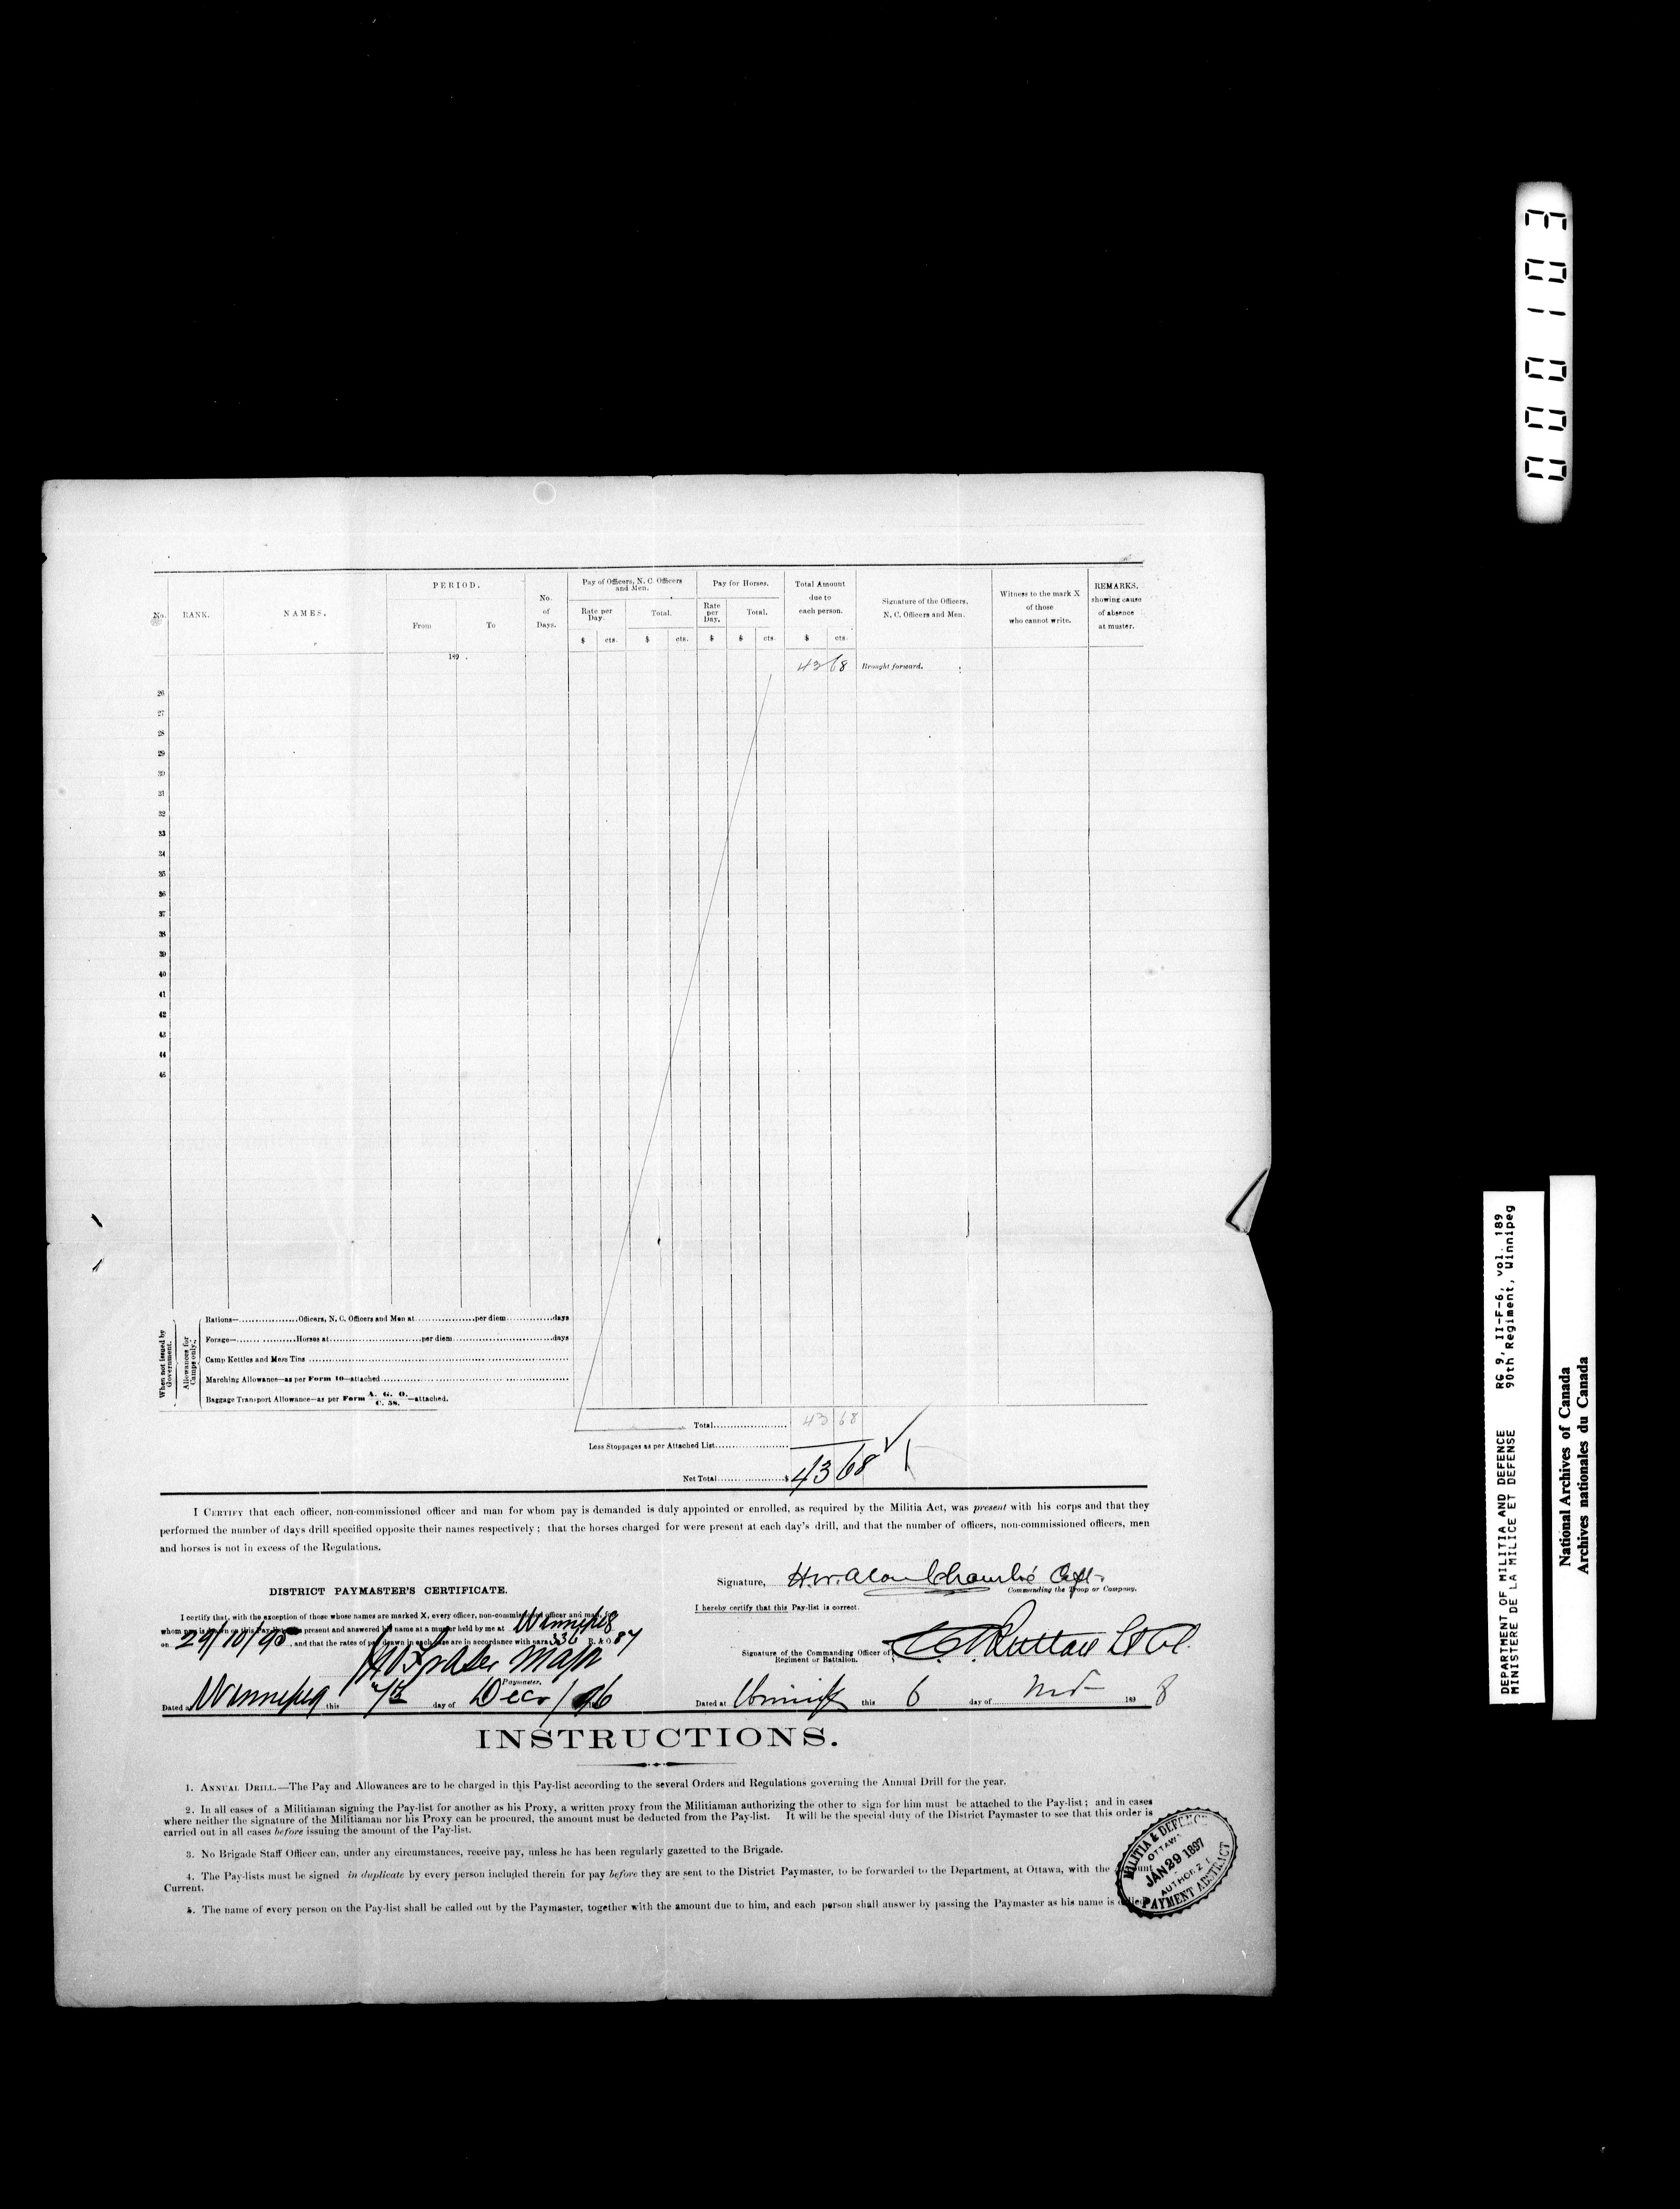 No.
RANK.
NAMES.
PERIOD.
From
To
No.
of
Days.
Pay of Officers, N. C. Officers
and Men.
Rate per
Day.
Total.
$ cts. $ cts.
Pay for Horses.
Rate
per
Day.
Total.
$ $ cts.
Total Amount
due to
each person.
$ cts.
Signature of the Officers,
N. C. Officers and Men.
Witness to the mark X
of those
who cannot write.
REMARKS,
showing cause
of absence
at muster.
189 .
43 68 Brought forward.
26
27
28
29
30
31
32
33
34
35
36
37
38
39
40
41
42
43
44
45
When not issued by
Government.
Allowances for
Camps only.
Rations—..................Officers, N. C. Officers and Men at..................per diem..............days
Forage—..................Horses at..................per diem..................days
Camp Kettles and Mess Tins ..................
Marching Allowance—as per Form 10—attached..................
Baggage Transport Allowance—as per Form A. G. O. C. 58. —attached.
Total.................. 43 68
Less Stoppages as per Attached List..................
Net Total..................$ 43 68
I CERTIFY that each officer, non-commissioned officer and man for whom pay is demanded is duly appointed or enrolled, as required by the Militia Act, was present with his corps and that they
performed the number of days drill specified opposite their names respectively ; that the horses charged for were present at each day's drill, and that the number of officers, non-commissioned officers, men
and horses is not in excess of the Regulations.
Signature,
Capt.
Commanding the Troop or Company.
DISTRICT PAYMASTER'S CERTIFICATE.
I hereby certify that this Pay-list is correct.
I certify that, with the exception of those whose names are marked X, every officer, non-commissioned officer and man, for
whom pay is drawn on this Pay-list was present and answered his name at a muster held by me at Winnipeg
on 29/10/95, and that the rates of pay drawn in each case are in accordance with para 336 R. & O. 87
Major
Paymaster.
Signature of the Commanding Officer of
Regiment or Battalion.
Lt Col.
Dated at Winnipeg this 7th day of Decr 96
Dated at this 6 day of 189 8
INSTRUCTIONS.
1. ANNUAL DRILL.—The Pay and Allowances are to be charged in this Pay-list according to the several Orders and Regulations governing the Annual Drill for the year.
2. In all cases of a Militiaman signing the Pay-list for another as his Proxy, a written proxy from the Militiaman authorizing the other to sign for him must be attached to the Pay-list ; and in cases
where neither the signature of the Militiaman nor his Proxy can be procured, the amount must be deducted from the Pay-list. It will be the special duty of the District Paymaster to see that this order is
carried out in all cases before issuing the amount of the Pay-list.
3. No Brigade Staff Officer can, under any circumstances, receive pay, unless he has been regularly gazetted to the Brigade.
4. The Pay-lists must be signed in duplicate by every person included therein for pay before they are sent to the District Paymaster, to be forwarded to the Department, at Ottawa, with the Account
Current.
5. The name of every person on the Pay-list shall be called out by the Paymaster, together with the amount due to him, and each person shall answer by passing the Paymaster as his name is called.
MILITIA & DEFENCE
OTTAWA
JAN 29 1897
PAYMENT ABSTRACT
000103
DEPARTMENT OF MILITIA AND DEFENCE RG 9, II-F-6, vol. 189
MINISTERE DE LA MILICE ET DEFENSE 90th Regiment, Winnipeg
National Archives of Canada
Archives nationales du Canada